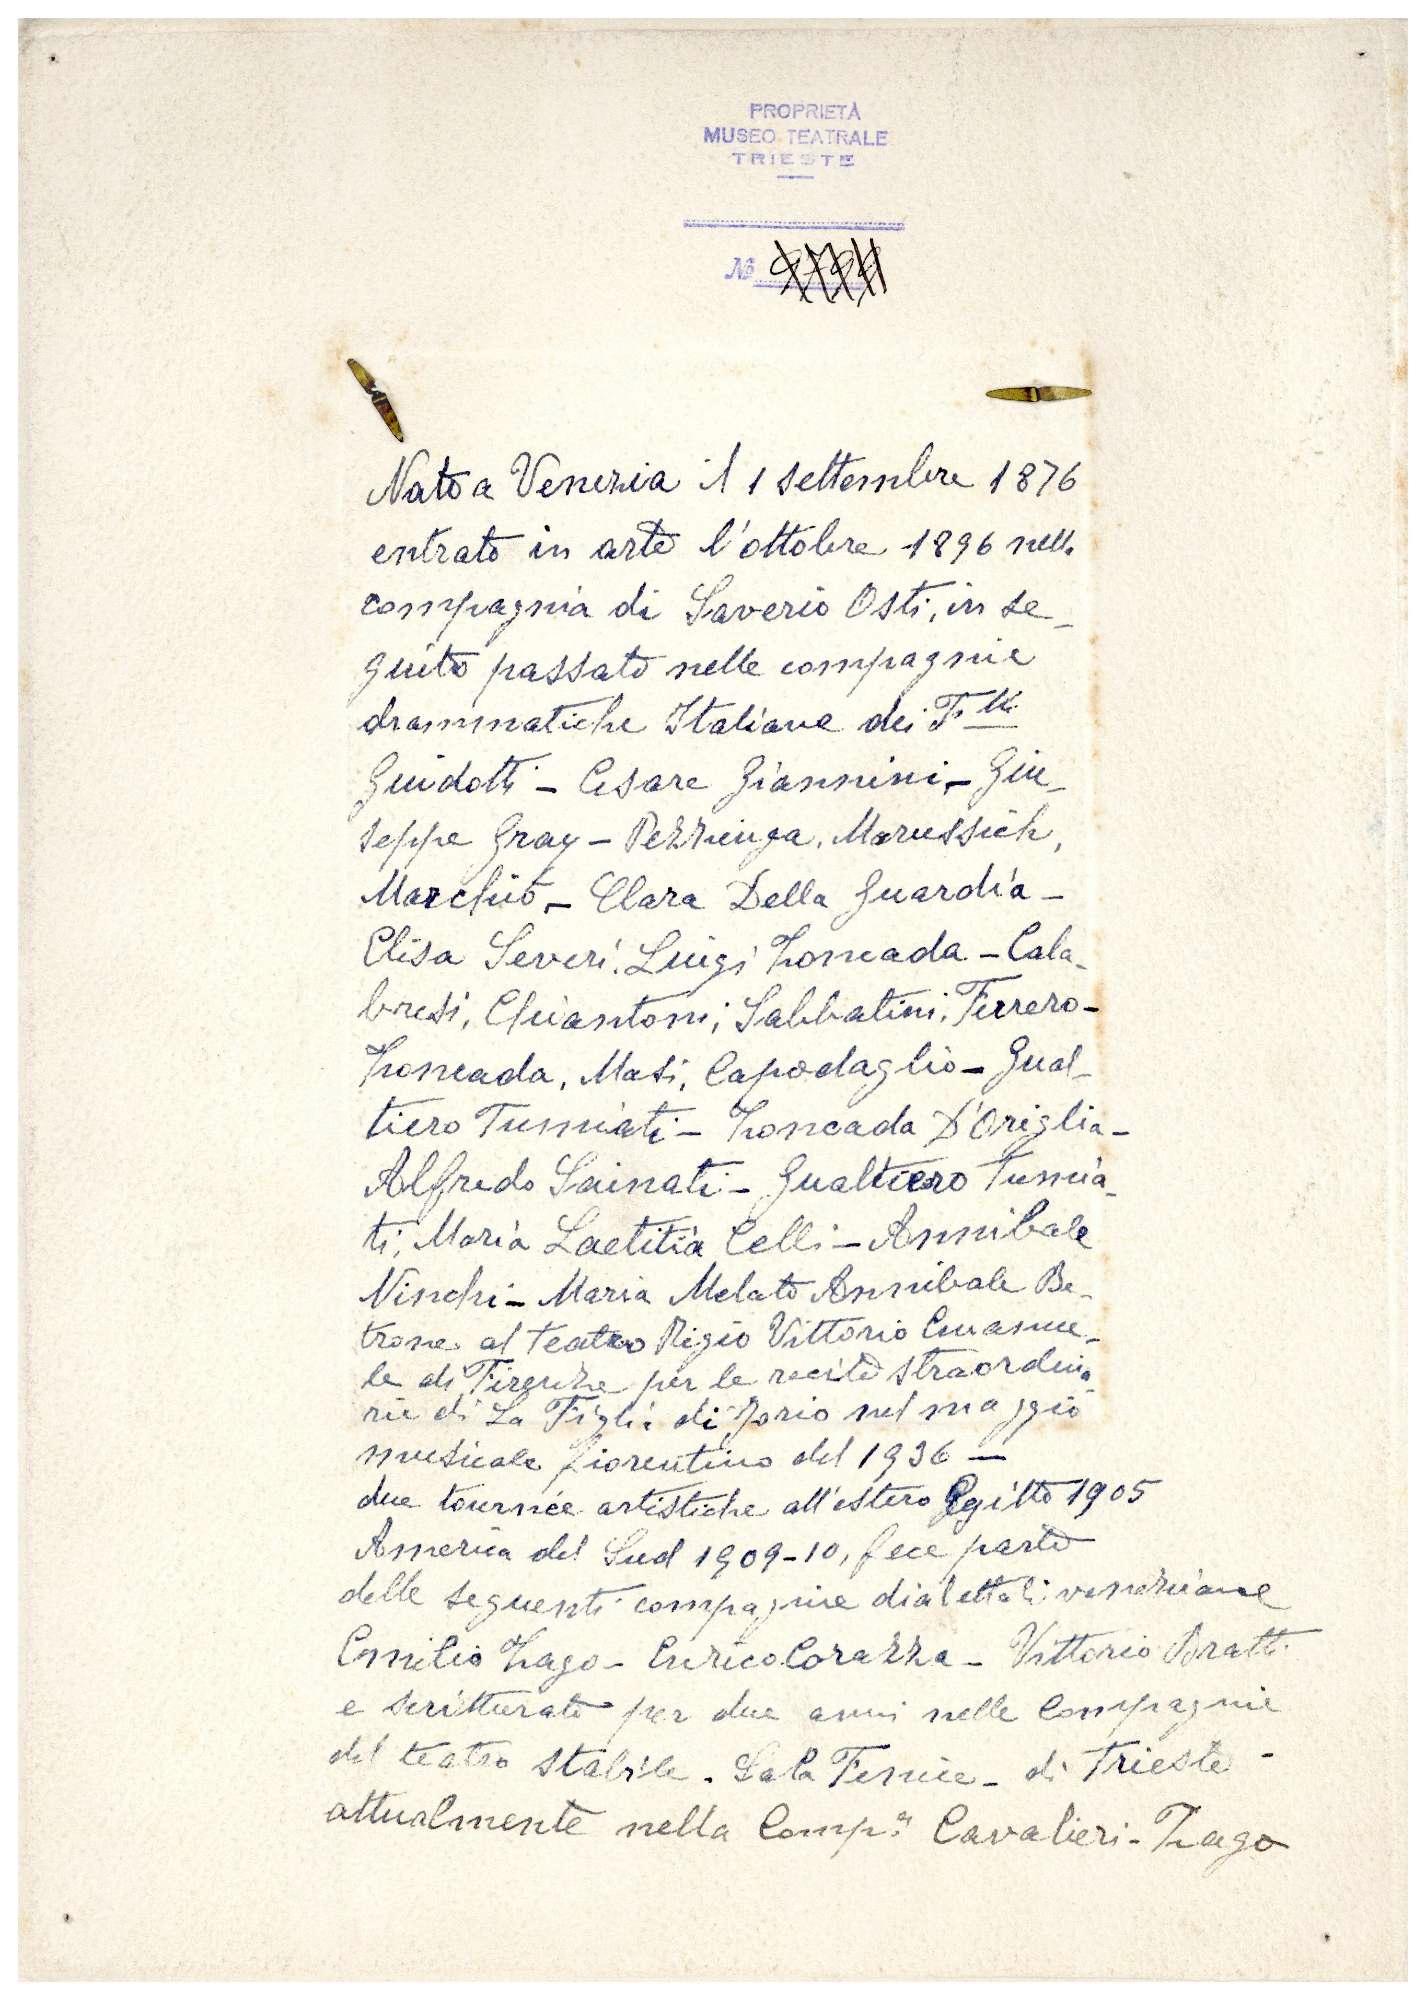 PROPRIETÀ
MUSEO TEATRALE
TRIESTE
Nº
Nato a Venezia il 1 settembre 1876
entrato in arte l'ottobre 1896 nella
compagnia di Saverio Osti, in se_
guito passato nelle compagnie
drammatiche Italiane dei F.lli
Guidotti – Cesare Giannini – Giu_
seppe Gray – Pezzinga, Marussich,
Marchiò – Clara Della Guardia –
Elisa Severi. Luigi Zoncada – Cala_
bresi, Chiantoni, Sabbatini, Ferrero –
Zoncada, Masi, Capodaglio – Gual_
tiero Tumiati – Zoncada D'Origlia –
Alfredo Sainati – Gualtiero Tumia_
ti, Maria Laetitia Celli – Annibale
Ninchi – Maria Melato Annibale Be_
trone al teatro Regio Vittorio Emanue_
le di Firenze per le recite straordina
rie di La Figlia di Jorio nel maggio
musicale fiorentino del 1936 —
due tournée artistiche all'estero Egitto 1905
America del Sud 1909-10, fece parte
delle seguenti compagnie dialettali veneziane
Emilio Zago – Enrico Corazza – Vittorio Bratti
e scritturato per due anni nelle Compagnie
del teatro stabile. Sala Fenice – di Trieste –
attualmente nella Comp.a Cavalieri – Zago